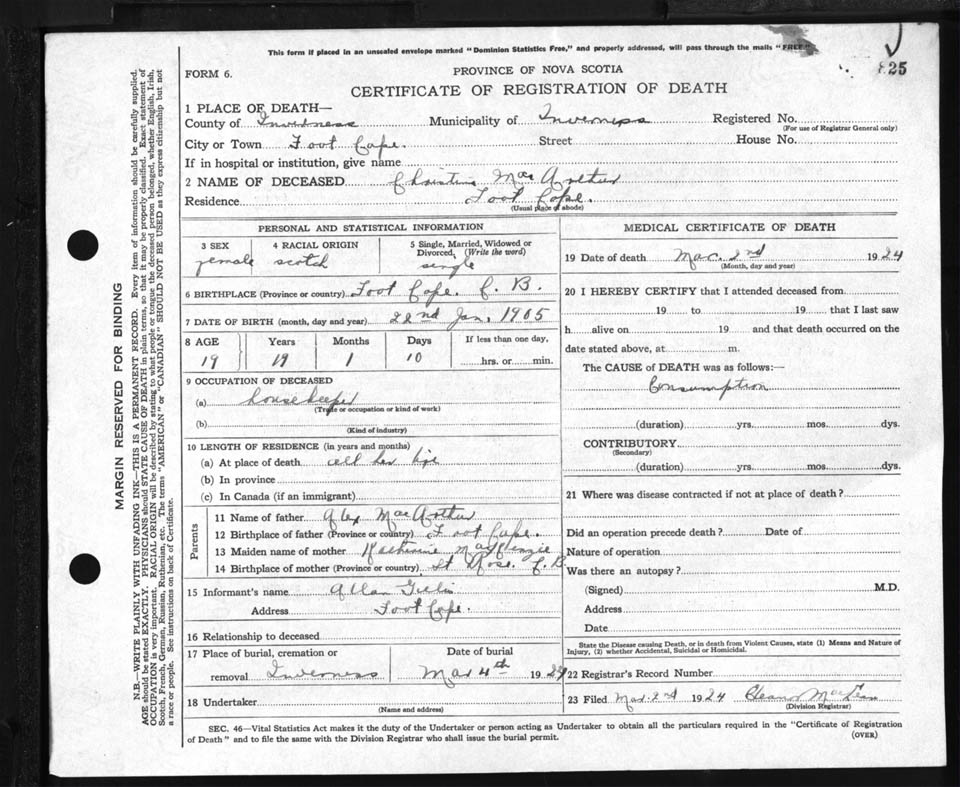 This form if placed in an unsealed envelope marked "Dominion Statistics Free," and properly addressed, will pass through the mails "FREE."
825
FORM 6.
PROVINCE OF NOVA SCOTIA
CERTIFICATE OF REGISTRATION OF DEATH
1 PLACE OF DEATH—
County of Inverness Municipality of Inverness Registered No.
(For use of Registrar General only)
City or Town Foot Cape. Street House No.
If in hospital or institution, give name
2 NAME OF DECEASED Christine MacArthur
Residence Foot Cape.
(Usual place of abode)
PERSONAL AND STATISTICAL INFORMATION
3 SEX 4 RACIAL ORIGIN 5 Single, Married, Widowed or Divorced, (Write the word)
female scotch single
6 BIRTHPLACE (Province or country) Foot Cape. C. B.
7 DATE OF BIRTH (month, day and year) 22nd Jan. 1905
8 AGE Years Months Days If less than one day,
19 19 1 10 hrs. or min.
9 OCCUPATION OF DECEASED
(a) housekeeper
(Trade or occupation or kind of work)
(b)
(Kind of industry)
10 LENGTH OF RESIDENCE (in years and months)
(a) At place of death all her life
(b) In province
(c) In Canada (if an immigrant)
Parents
11 Name of father Alex MacArthur
12 Birthplace of father (Province or country) Foot Cape.
13 Maiden name of mother Katherine MacKenzie
14 Birthplace of mother (Province or country) St Rose. C. B
15 Informant's name Allan
Address Foot Cape.
16 Relationship to deceased
17 Place of burial, cremation or removal Inverness Date of burial Mar 4th 1924
18 Undertaker
(Name and address)
MEDICAL CERTIFICATE OF DEATH
19 Date of death Mar. 2nd 1924
(Month, day and year)
20 I HEREBY CERTIFY that I attended deceased from
19 to 19 that I last saw
h alive on 19 and that death occurred on the
date stated above, at m.
The CAUSE of DEATH was as follows:—
Consumption
(duration) yrs. mos. dys.
CONTRIBUTORY
(Secondary)
(duration) yrs. mos. dys.
21 Where was disease contracted if not at place of death?
Did an operation precede death? Date of
Nature of operation
Was there an autopsy?
(Signed) M.D.
Address
Date
State the Disease causing Death, or in death from Violent Causes, state (1) Means and Nature of
Injury, (2) whether Accidental, Suicidal or Homicidal.
22 Registrar's Record Number
23 Filed Mar. 2nd 1924 Eleanor MacLean
(Division Registrar)
SEC. 46—Vital Statistics Act makes it the duty of the Undertaker or person acting as Undertaker to obtain all the particulars required in the "Certificate of Registration
of Death" and to file the same with the Division Registrar who shall issue the burial permit.
(OVER)
MARGIN RESERVED FOR BINDING
N.B.—WRITE PLAINLY WITH UNFADING INK—THIS IS A PERMANENT RECORD. Every item of information should be carefully supplied.
AGE should be stated EXACTLY. PHYSICIANS should STATE CAUSE OF DEATH in plain terms, so that it may be properly classified. Exact statement of
OCCUPATION is very important. RACIAL ORIGIN will be described by stating to what people or tongue the deceased person belonged, whether English, Irish,
Scotch, French, German, Russian, Ruthenian, etc. The terms "AMERICAN" or "CANADIAN" SHOULD NOT BE USED as they express citizenship but not
a race or people. See instructions on back of Certificate.